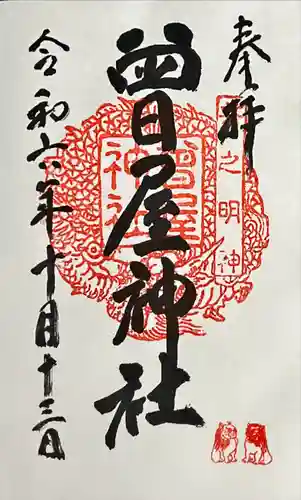 奉拝
之明神
曾屋神社
曾屋
神社
令和六年十月十三日